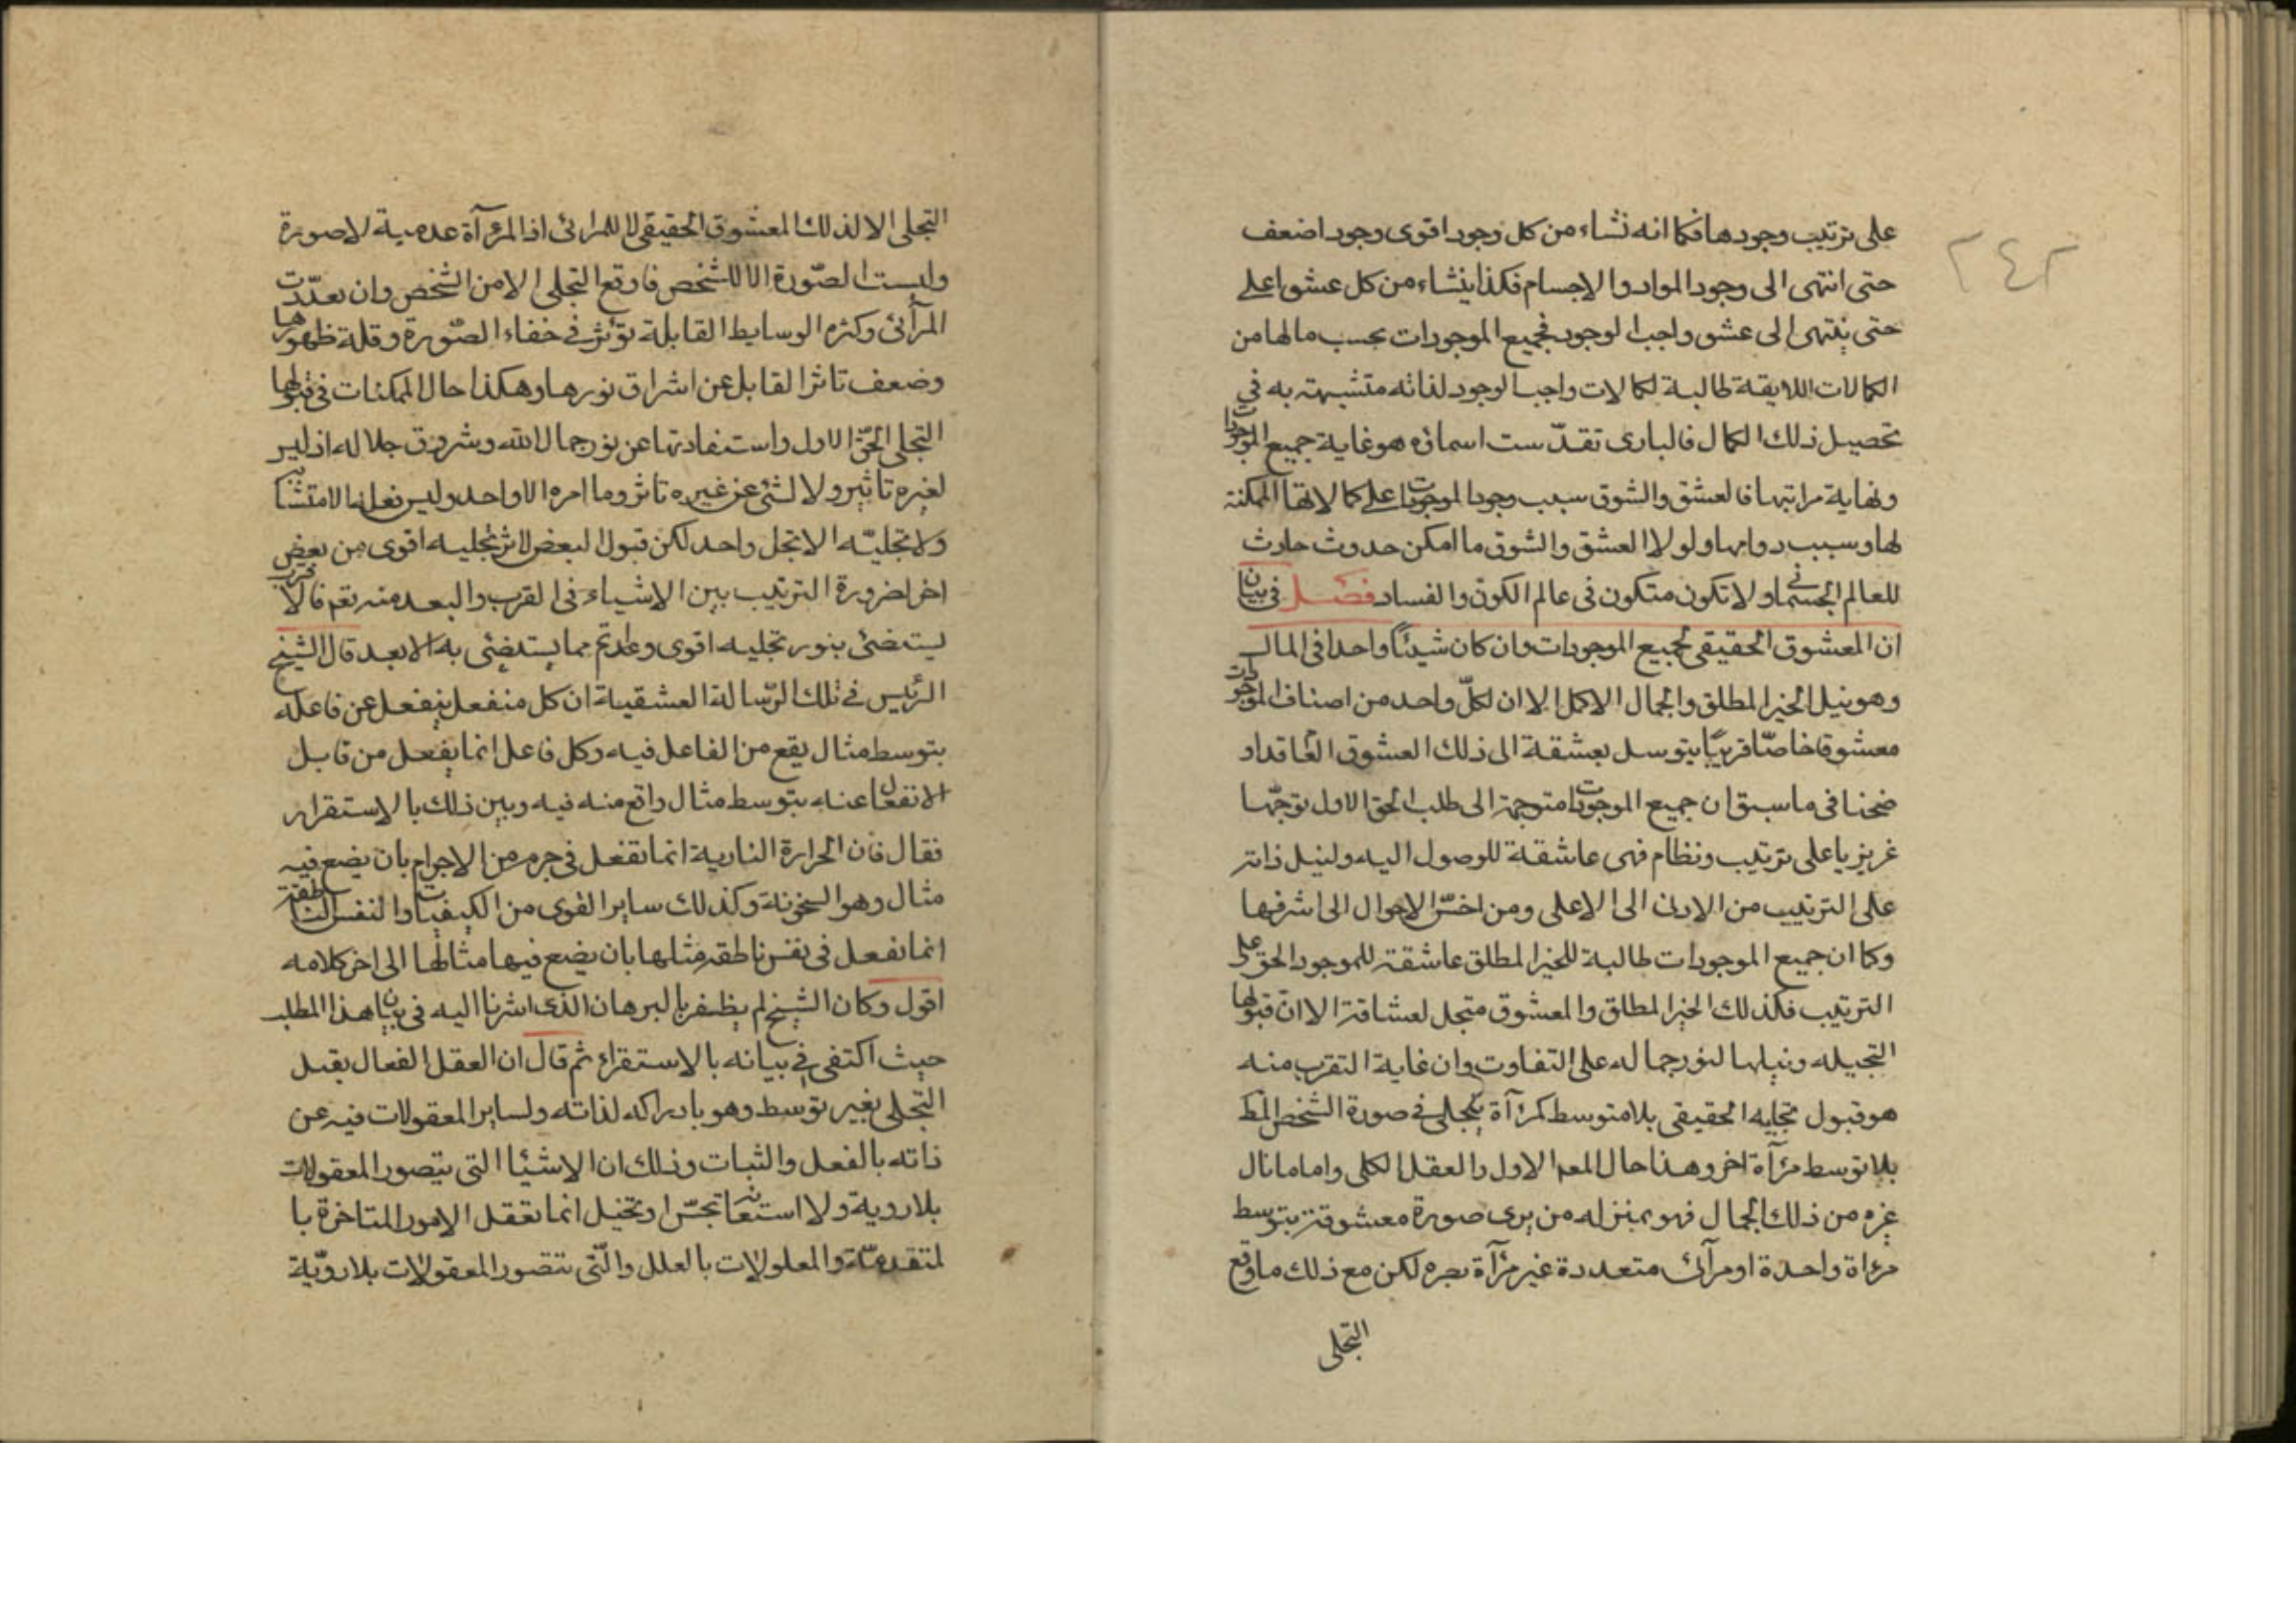 ٢٤٢
على ترتيب وجودها فكما انه نشاء من كل وجود اقوى وجود اضعف
حتى انتهى الى وجود المواد والاجسام فكذا ينشاء من كل عشق اعلے
حتى ينتهى الى عشق واجب الوجود فجميع الموجودات بحسب مالها من
الكمالات اللايقة طالبة لكمالات واجب الوجود لذاته متشبهة به فى
تحصيل ذلك الكمال فالبارى تقدّست اسمائه هو غاية جميع الموجودات
ونهاية مراتبها فالعشق والشوق سبب وجود الموجودات على كمالاتها الممكنة
لها وسبب دوامها ولولا العشق والشوق ما امكن حدوث حادث
للعالم الجسمانى ولا تكون متكون فى عالم الكون والفساد فصل فى بيان
ان المعشوق الحقيقى لجميع الموجودات وان كان شيئاً واحدا فى المال
وهو نيل الخير المطلق والجمال الاكمل الا ان لكلّ واحد من اصناف الموجودات
معشوقا خاصّا قريبًا يتوسل بعشقة الى ذلك العشوق العا قد او
ضحنا فى ما سبق ان جميع الموجودات متوجهة الى طلب الحق الاول توجّها
غريزيا على ترتيب ونظام فهى عاشقة للوصول اليه ولنيل ذاته
على الترتيب من الادنى الى الاعلى ومن اخسّ الاحوال الى اشرفها
وكما ان جميع الموجودات طالبة للخير المطلق عاشقة للموجود الحق على
الترتيب فكذلك الخير المطلق والمعشوق متجل لعشاقة الا ان قبولها
التجيله ونيلها لنور جماله على التفاوت وان غاية التقرب منه
هو قبول تجليه الحقيقى بلا متوسط كمرآة يتجلى فى صورة الشخص المط
بلا توسط مرآة اخر وهذا حال المعد الاول والعقل الكلى واما ما نال
غيره من ذلك الجمال فهو بمنزله من يرى صورة معشوقة بتوسط
مرءاة واحدة او مرآئى متعددة غير مرآة بصره لكن مع ذلك ما وقع
التجلى
التجلى الا لذلك المعشوق الحقيقى لا للمرائى اذ المرآة عدمية لا صورة
وليست الصّورة الا للشخص فاوقع التجلى الا من الشخص وان تعدّدت
المرأئى وكثره الوسايط القابلة تؤثر فى خفاء الصّورة وقلة ظهورها
وضعف تاثر القابل عن اشراق نورها وهكذا حال الممكنات فى قبولها
التجلى الحقّ الاول واستفادتها عن نور جمالالله وشروق جلاله اذ ليس
لغيره تاثير ولا لشئ عن غيره تاثر وما امره الا واحد وليس
ولا تجليّه الا تجل واحد لكن قبول البعض لاثر تجليه اقوى من بعض
اخر لضرورة الترتيب بين الاشياء فى القرب والبعد منه نعم فالاقرب
يستضئى بنور تجليه اقوى مما يستضئى به الابعد قال الشيخ
الرئيس فى تلك الرّسالة العشقية ان كل منفعل ينفعل عن فاعله
بتوسط مثال يقع من الفاعل فيه وكل فاعل انما يفعل من قابل
الانفعال عنه بتوسط مثال واقع منه فيه وبين ذلك بالاستقرار
فقال فان الحرارة النارية انما تفعل فى جرم من الاجرام بان يضع فيه
مثال وهو السخونة وكذلك ساير القوى من الكيفيات والنفس الناطقة
انما تفعل فى نفس ناطقه مثلها بان يضع فيها مثالها الى اخر كلامه
اقول وكان الشيخ لم يظفر بالبرهان الذى اشرنا اليه فى بيان هذا المطلب
حيث اكتفى فى بيانه بالاستقراء ثم قال ان العقل الفعال يقبل
التجلى بغير توسط وهو بادراكه لذاته ولساير المعقولات فيه عن
ذاته بالفعل والثبات وذلك ان الاشيا التى يتصور المعقولات
بلا روية ولا استعانة بحسّ او تخيل انما تعقل الامور المتاخرة با
لمتقدمّة والمعلولات بالعلل والّتى تتصور المعقولات بلا روّية